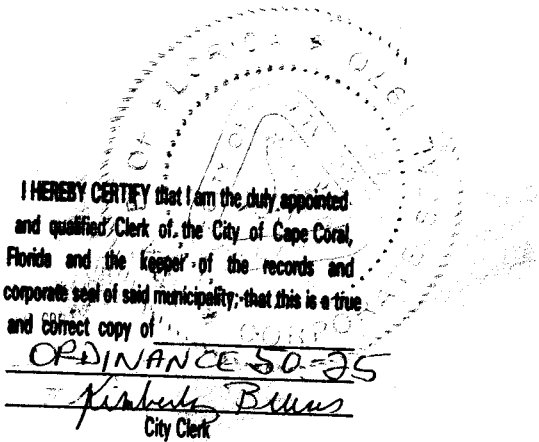 I HEREBY CERTIFY that I am the duly appointed
and qualified Clerk of the City of Cape Coral,
Florida and the keeper of the records and
corporate seal of said municipality; that this is a true
and correct copy of
ORDINANCE 50-25
Kimberly Bruns
City Clerk
OF FLORIDA ★ 1970
CORPORATE SEAL